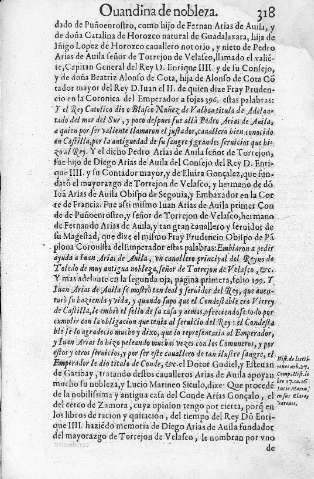 Quandina de nobleza. 318
dado de Puñoenrostro, como hijo de Fernan Arias de Auila, y
de doña Catalina de Horozco natural de Guadalaxara, hija de
Iñigo Lopez de Horozco cauallero notorio, y nieto de Pedro
Arias de Auila señor de Torrejon de Velasco, llamado el valié-
te, Capitan General del Rey D. Enrique IIII. y de su Consejo,
y de doña Beatriz Alonso de Cota, hija de Alonso de Cota Cõ
tador mayor del Rey D. Iuan el II. de quien dize Fray Pruden-
cio en la Coronica del Emperador a fojas 396. estas palabras:
Y el Rey Catolico dio a Blasco Nuñez de Valboa titulo de Adelan-
tado del mar del Sur, y poco despues fue allà Pedro Arias de Auila,
a quien por ser valiente llamaron el justador, cauallero bien conocido
en Castilla, por la antiguedad de su sangre y grandes seruicios que hi-
zo al Rey. Y el dicho Pedro Arias de Auila señor de Torrejon,
fue hijo de Diego Arias de Auila del Consejo del Rey D. Enri-
que IIII. y su Contador mayor, y de Eluira Gonçalez, que fun-
dató el mayorazgo de Torrejon de Velasco, y hermano de dõ
Iuã Arias de Auila Obispo de Segouia, y Embaxador en la Cor
te de Francia. Fue assi mismo Iuan Arias de Auila primer Con
de de Puñoenrostro, y señor de Torrejon de Velasco, hermano
de Fernando Arias de Auila, y tan gran cauallero y seruidor de
su Magestad, que dize el mismo Fray Prudencio Obispo de Pã
plona Coronista del Emperador estas palabras: Embiaron a pedir
ayuda a Iuan Arias de Auila, vn cauallero principal del Reyno de
Toledo de muy antigua nobleza, señor de Torrejon de Velasco, &c.
Y mas adelante en la segunda oja, pagina primera, folio 390. Y
Iuan Arias de Auila se mostrò tan leal y seruidor del Rey, que auentu-
rò su hazienda y vida, y quando supo que el Condestable era Virrey
de Castilla, le embiò el sello de su casa y armas, ofreciendose todo por
cumplir con la obligacion que tenia al seruicio del Rey: el Condesta
ble se lo agradecio mucho y dize, que lo representaria al Emperador,
y Iuan Arias lo hizo peleando muchas vezes con los Comuneros, y por
estos y otros seruicios, y por ser este cauallero de tan ilustre sangre, el
Emperador le dio titulo de Conde, &c. el Dotor Gudiel, y Esteuan
de Garibay, tratando destos caualleros Arias de Auila apoyan
mucho su nobleza, y Lucio Marineo Siculo, dize: Que procede
de la nobilissima y antigua casa del Conde Arias Gonçalo, el
del cerco de Zamora, cuya opinion tengo por cierta, porq̃ en
los libros de racion y quitacion, del tiempo del Rey Dõ Enri-
que IIII. haziédo memoria de Diego Arias de Auila fundador
del mayorazgo de Torrejon de Velasco, le nombran por vno
de